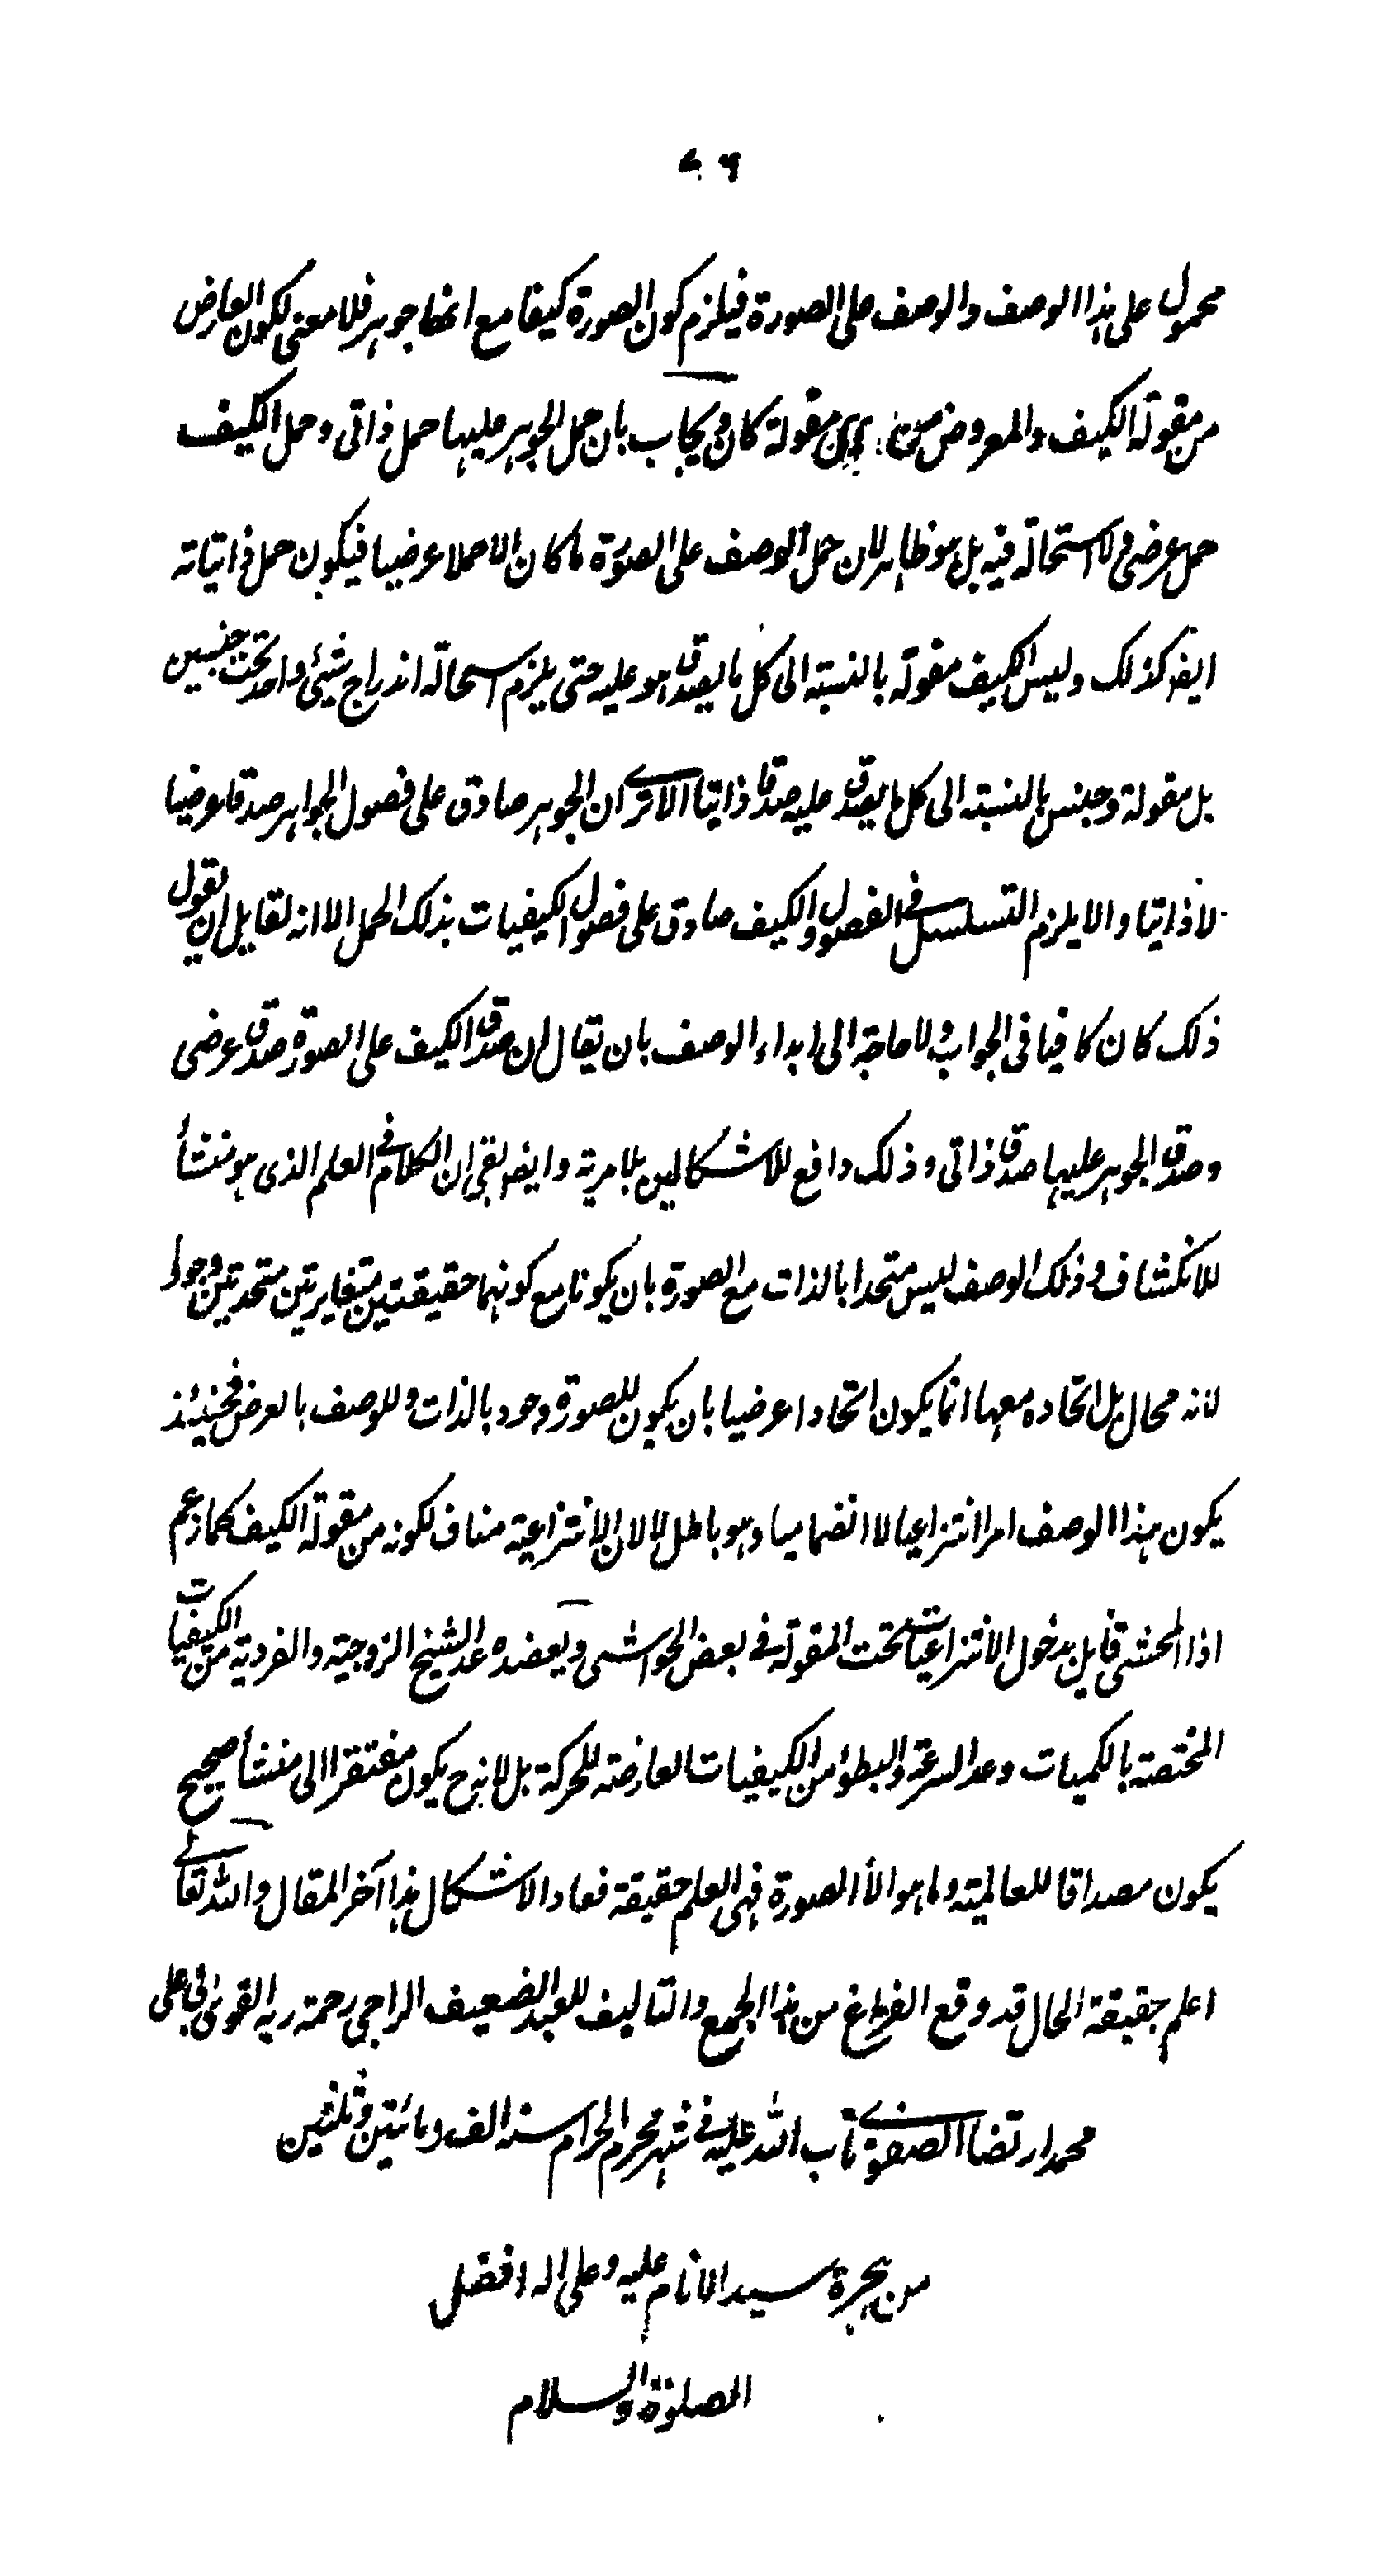 ٧٦
محمول على هذا الوصف والوصف على الصورة فيلزم كون الصورة كيفا مع انها جوهر فلا معنى لكون العارض
من مقولة الكيف والمعروض من اى مقولة كان ويجاب بان حمل الجوهر عليها حمل ذاتى وحمل الكيف
حمل عرضى ولا استحالة فيه بل هو ظاهر لان حمل الوصف على الصورة ما كان الا حملا عرضيا فيكون حمل ذاتياته
ايضا كذلك وليس الكيف مقولة بالنسبة الى كل ما يصدق هو عليه حتى يلزم استحالة اندراج شيئ واحد تحت جنسين
بل مقولة وجنس بالنسبة الى كل ما يصدق عليه صدقا ذاتيا الا ترى ان الجوهر صادق على فصول الجواهر صدقا عرضيا
لا ذاتيا والا يلزم التسلسل فى الفصول والكيف صادق على فصول الكيفيات بذلك الحمل الا انه لقايل ان يقول
ذلك كان كافيا فى الجواب ولا حاجة الى ابداء الوصف بان يقال ان صدق الكيف على الصورة صدق عرضى
وصدق الجوهر عليها صدق ذاتى وذلك دافع للاشكالين بلا مرية وايضا بقى ان الكلام فى العلم الذى هو منشأ
للانكشاف وذلك الوصف ليس متحدا بالذات مع الصورة بان يكونا مع كونهما حقيقتين متغايرتين متحدتين وجودا
لانه محال بل اتحاده معها انما يكون اتحادا عرضيا بان يكون للصورة وجود بالذات وللوصف بالعرض فحينئذ
يكون هذا الوصف امرا انتزاعيا لا انضماميا وهو باطل لا لان الانتزاعية مناف لكونه من مقولة الكيف كما زعم
اذ المحشى قايل بدخول الانتزاعيات تحت المقولة فى بعض الحواشى ويعضده عد الشيخ الزوجية والفردية من الكيفيات
المختصة بالكميات وعد السرعة والبطؤ من الكيفيات العارضة للحركة بل لانه ح يكون مفتقرا الى منشأ صحيح
يكون مصداقا للعالمية وما هو الا الصورة فهى العلم حقيقة فعاد الاشكال هذا آخر المقال والله تعالى
اعلم بحقيقة الحال قد وقع الفراغ من هذا الجمع والتاليف للعبد الضعيف الراجى رحمة ربه القوى على
محمد ارتضا الصفوى تاب الله عليه فى شهر محرم الحرام سنه الف ومائتين وثلثين
من هجرة سيد الانام عليه وعلى اله افضل
الصلوة والسلام